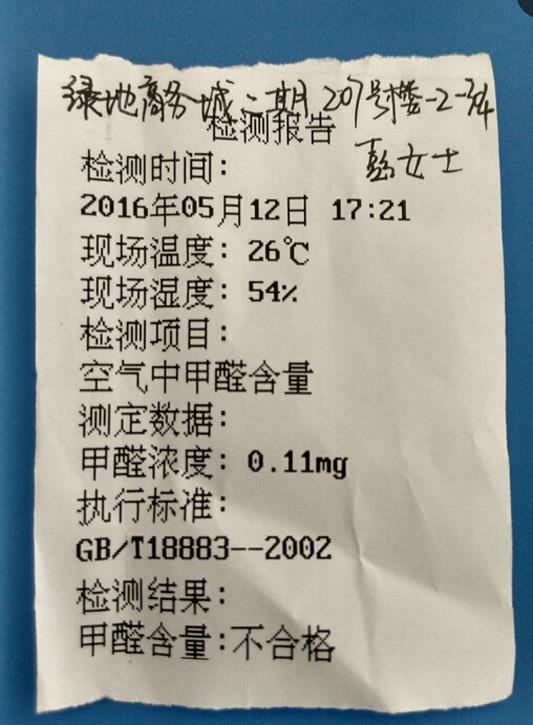 绿地商务城二期207号楼-2-
检测报告
彭女士
检测时间:
2016年05月12日 17:21
现场温度: 26℃
现场湿度: 54%
检测项目:
空气中甲醛含量
测定数据:
甲醛浓度: 0.11mg
执行标准:
GB/T18883--2002
检测结果:
甲醛含量:不合格